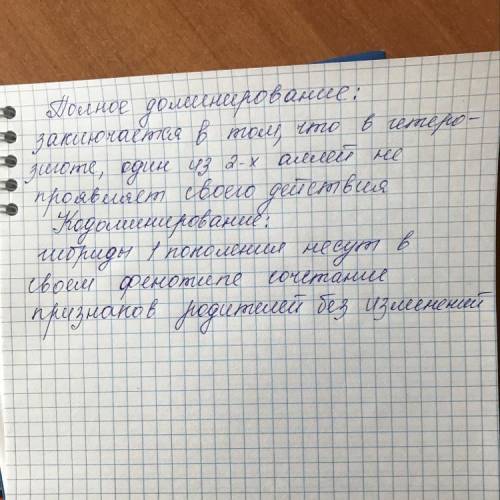 Полное доминирование:
заключается в том, что в гетеро-
зиготе, один из 2-х аллей не
проявляет своего действия
Кодоминирование:
гибриды 1 поколения несут в
своем фенотипе сочетание
признаков родителей без изменений